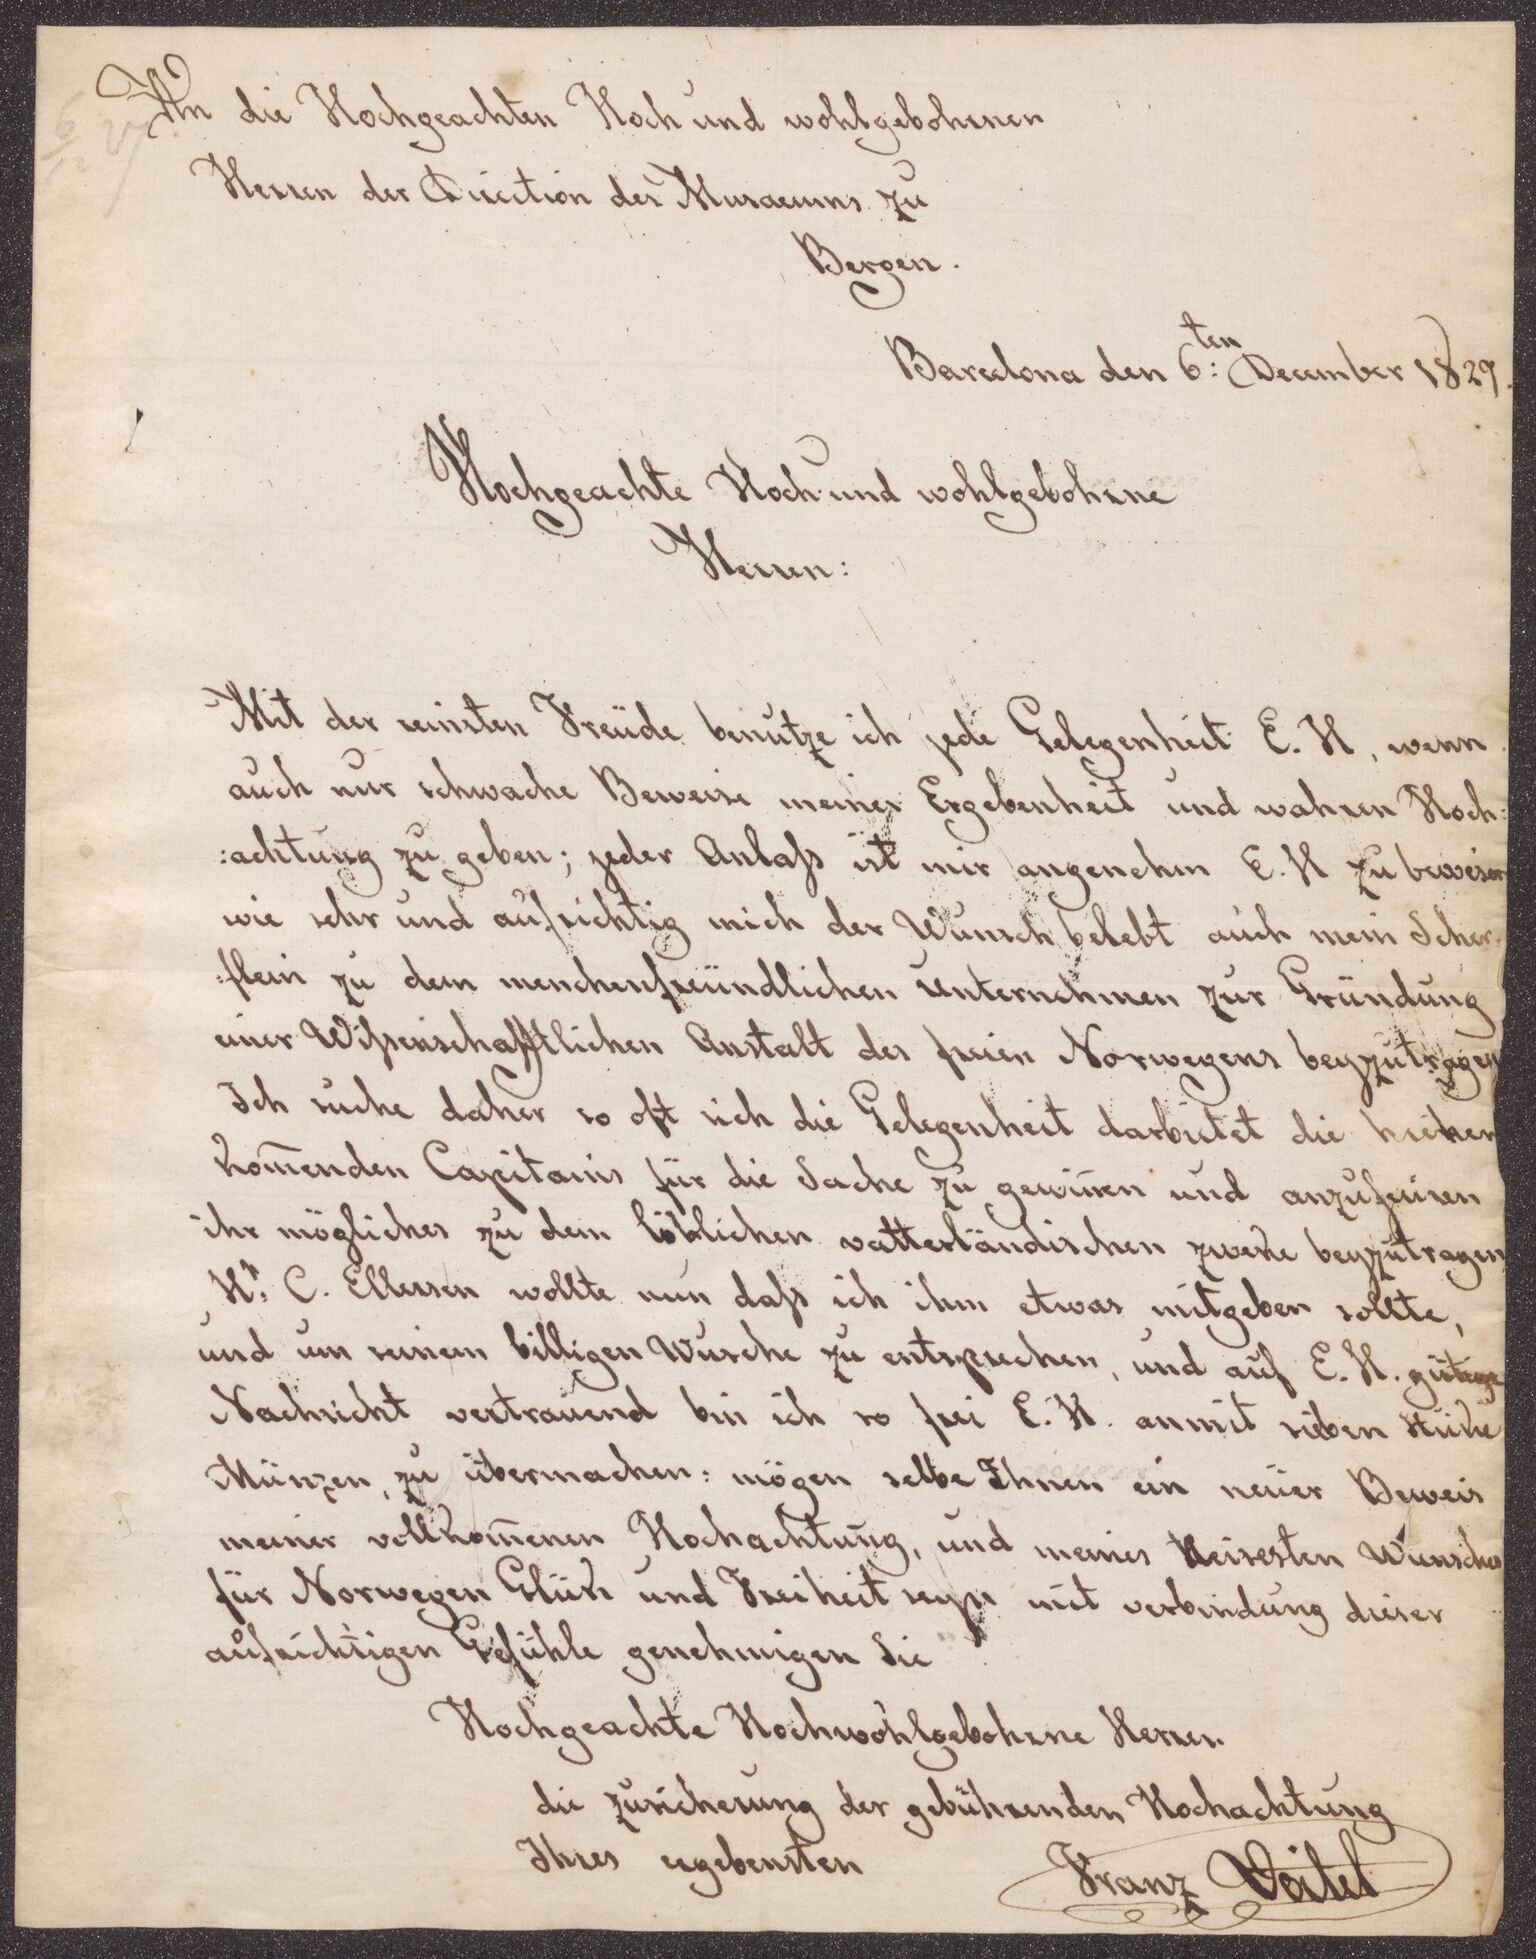 An die Hochgeachten Hoch und wohlgebohrnen
Herren der Direction des Musaeums zu
Bergen.
Barcelona den 6:ten December 1829.
Hochgeachte Hoch und wohlgebohrne
Herren:
Mit der reinsten Freüde benutze ich jede Gelegenheit E. H, wenn
auch nur schwache Beweise meiner Ergebenheit und wahren Hoch:
:achtung zu geben; jeder Anlaß ist mir angenehm E. H zu beweisen
wie sehr und aufrichtig mich der Wunsch belebt auch mein Scher:
:flein zu dem menchenfreündlichen Unternehmen zur Gründung
einer Wißenschafftlichen Anstalt des freien Norwegens beyzutragen
Ich suche daher so oft sich die Gelegenheit darbietet die hieher
kom̅enden Capitains für die Sache zu gewin̅en und anzufeuren
ihr mögliches zu dem löblichen vatterländischen zweke beyzutragen
Hr. C. Ellersen wollte nun daß ich ihm etwas mitgeben sollte,
und um seinem billigen Wusche zu entsprechen, und auf E. H. gütige
Nachsicht vertrauend bin ich so frei E. H. anmit sieben stüke
Münzen, zu übermachen: mögen selbe Ihnen ein neüer Beweis
meiner vollkom̅enen Hochachtung, und meines Wunsches
für Norwegen Glük und Freiheit seyn mit verbindung dieser
aufrichtigen Gefühle genehmigen Sie
Hochgeachte Hochwohlgebohrne Herren.
die zusicherung der gebührenden Hochachtung
Ihres ergebensten Franz Voitel